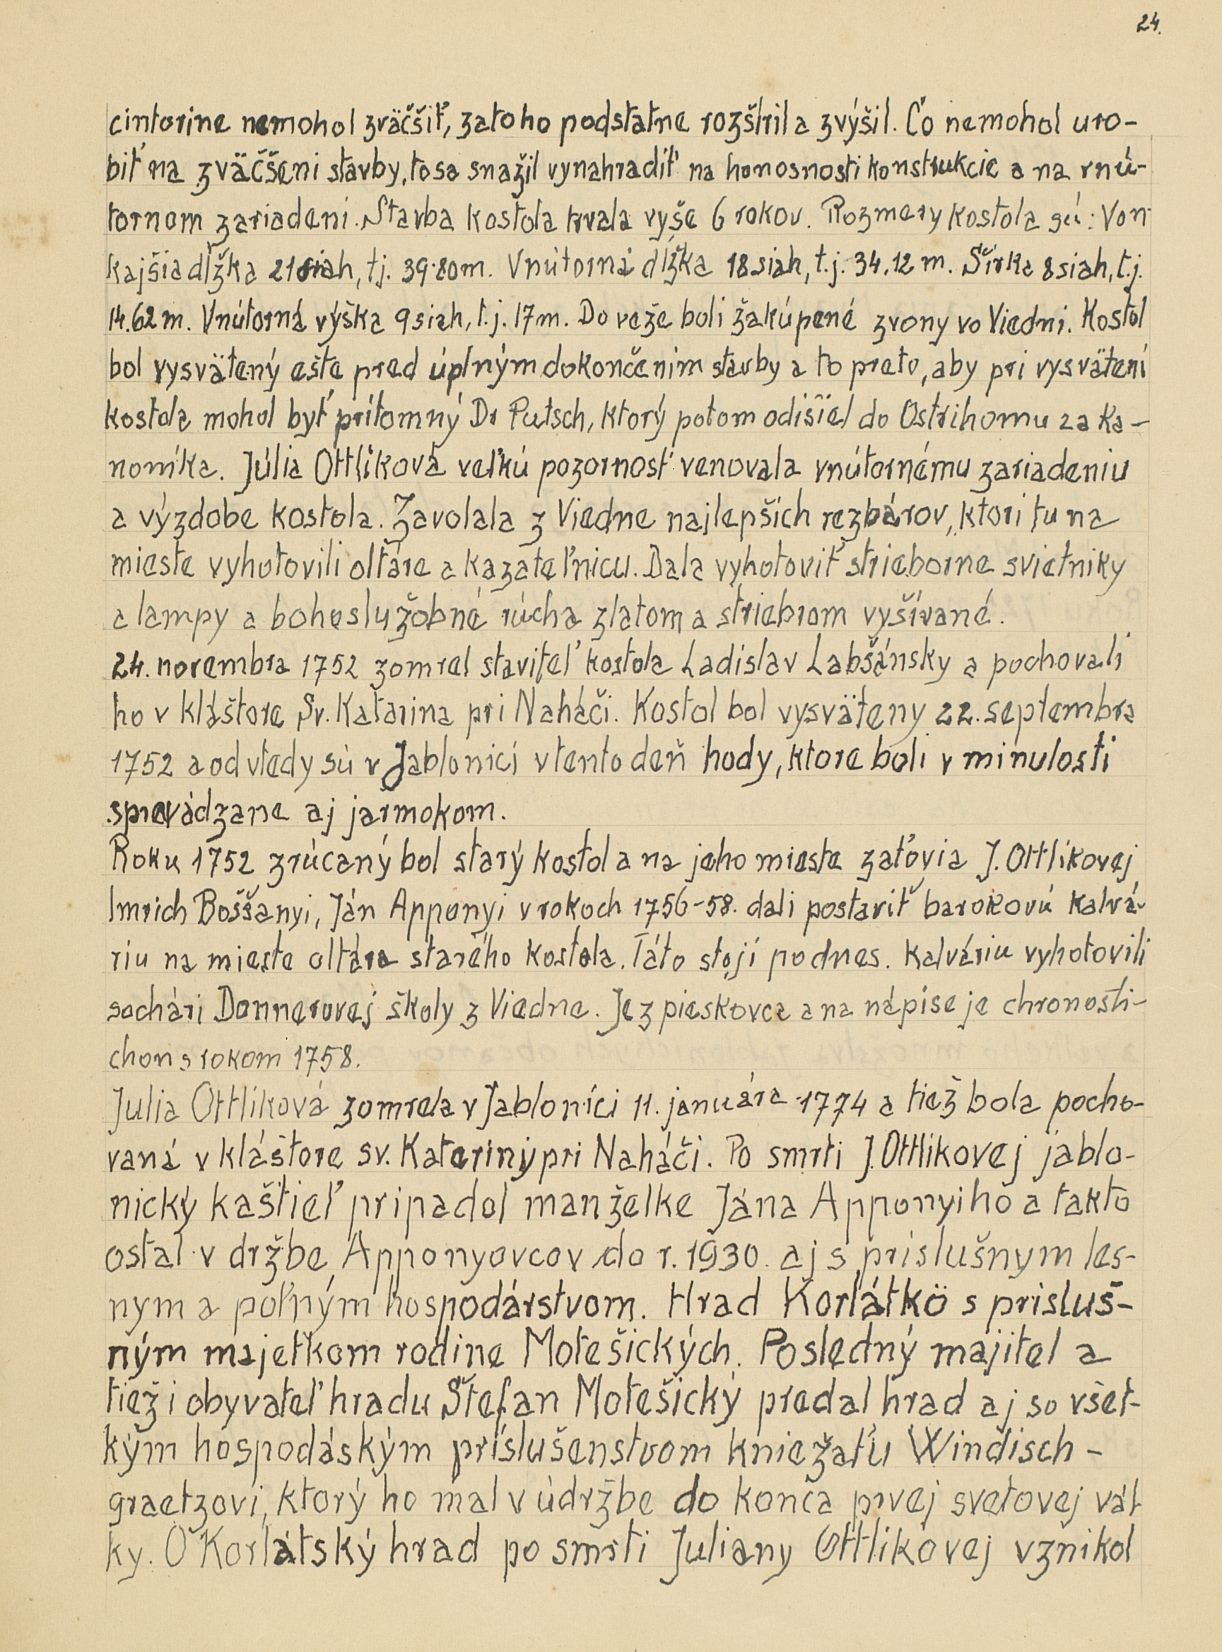 24.
cintorine nemohol zväčšiť, zato ho podstatne rozšíril a zvýšil. Čo nemohol uro-
biť na zväčšeni stavby, to sa snažil vynahradiť na honosnosti konstrukcie a na vnú-
tornom zariadení. Stavba kostola trvala vyše 6 rokov. Rozmery kostola sú: Von-
kajšia dĺžka 21 siah, t.j. 39.80m. Vnútorná dĺžka 18 siah, t.j. 34.12 m. Šírka 8 siah, t.j.
14.62 m. Vnútorná výška 9 siah, t.j. 17m. Do veže boli zakúpené zvony vo Viedni. Kostol
bol vysvätený ešte pred úplným dokončenim stavby a to preto, aby pri vysvätení
kostola mohol byť prítomný Dr Putsch, ktorý potom odišiel do Ostrihomu za ka-
nomíka. Júlia Ottlíková veľkú pozornosť venovala vnútornému zariadeniu
a výzdobe kostola. Zavolala z Viedne najlepších rezbárov, ktorí tu na
mieste vyhotovili oltáre a kazateľnicu. Dala vyhotoviť strieborne svietniky
a lampy a bohoslužobné rúcha zlatom a striebrom vyšívané.
24. novembra 1752 zomrel staviteľ kostola Ladislav Labšánsky a pochovali
ho v kláštore Sv. Katarina pri Naháči. Kostol bol vysväteny 22. septembra
1752 a od vtedy sú v Jablonici v tento deň hody, ktore boli v minulosti
sprevádzane aj jarmokom.
Roku 1752 zrúcaný bol starý kostol a na jeho mieste zaťovia J. Ottlíkovej
Imrich Boššanyi, Ján Apponyi v rokoch 1756-58. dali postaviť barokovú kalvá-
riu na mieste oltára starého kostola. Táto stojí podnes. Kalváriu vyhotovili
sochári Donnerovej školy z Viedne. Je z pieskovca a na nápise je chronosti-
chon s rokom 1758.
Julia Ottlíková zomrela v Jablonici 11. januára 1774 a tiež bola pocho-
vaná v kláštore sv. Kateriny pri Naháči. Po smrti J. Ottlikovej jablo-
nický kaštieľ pripadol manželke Jána Apponyiho a takto
ostal v držbe Apponyovcov do r. 1930. aj s príslušnym les-
nym a poľným hospodárstvom. Hrad Korlátkö s prisluš-
ným majetkom rodine Motešických. Posledný májitel a
tiež i obyvateľ hradu Štefan Motešický predal hrad aj so všet-
kým hospodáským príslušenstvom kniežaťu Windisch-
graetzovi, ktorý ho mal v údržbe do konca prvej svetovej vát
ky. O Korlátský hrad po smrti Juliany Ottlikovej vznikol